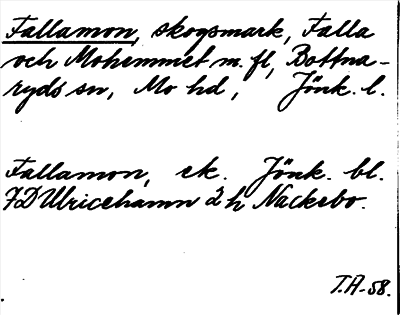 Fallamon, skogsmark, Falla
och Mohemmet m. fl, Bottna-
ryds sn, Mo hd, Jönk. l.
Fallamon, ek. Jönk. bl.
7D Ulricehamn 2 h Nackebo.
T.A-58.